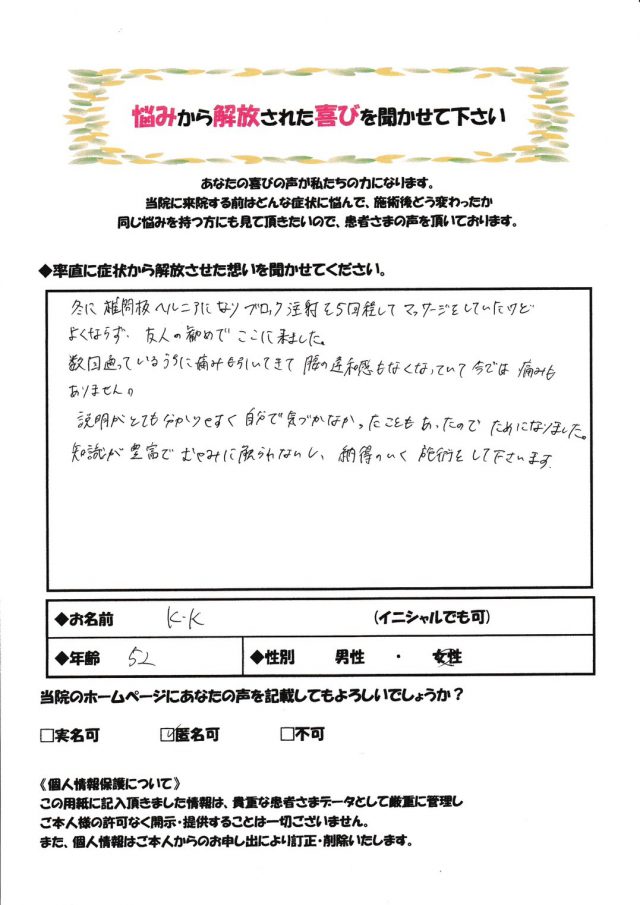 悩みから解放された喜びを聞かせて下さい
あなたの喜びの声が私たちの力になります。
当院に来院する前はどんな症状に悩んで、施術後どう変わったか
同じ悩みを持つ方にも見て頂きたいので、患者さまの声を頂いております。
◆率直に症状から解放させた想いを聞かせてください。
冬に 椎間板ヘルニアになり ブロック注射を5回程して マッサージをしていたけど
よくならず、友人の勧めで ここに来ました。
数回通っているうちに痛みも引いてきて 腰の違和感もなくなっていて 今では 痛みも
ありません。
説明がとても分かりやすく 自分で気づかなかったこともあったので ためになりました。
知識が豊富で むやみに触られないし、納得のいく 施術をして下さいます。
◆お名前 K・K (イニシャルでも可)
◆年齢 52 ◆性別 男性 ・ 女性
当院のホームページにあなたの声を記載してもよろしいでしょうか？
□実名可 ☑匿名可 □不可
《個人情報保護について》
この用紙に記入頂きました情報は、貴重な患者さまデータとして厳重に管理し
ご本人様の許可なく開示・提供することは一切ございません。
また、個人情報はご本人からのお申し出により訂正・削除いたします。